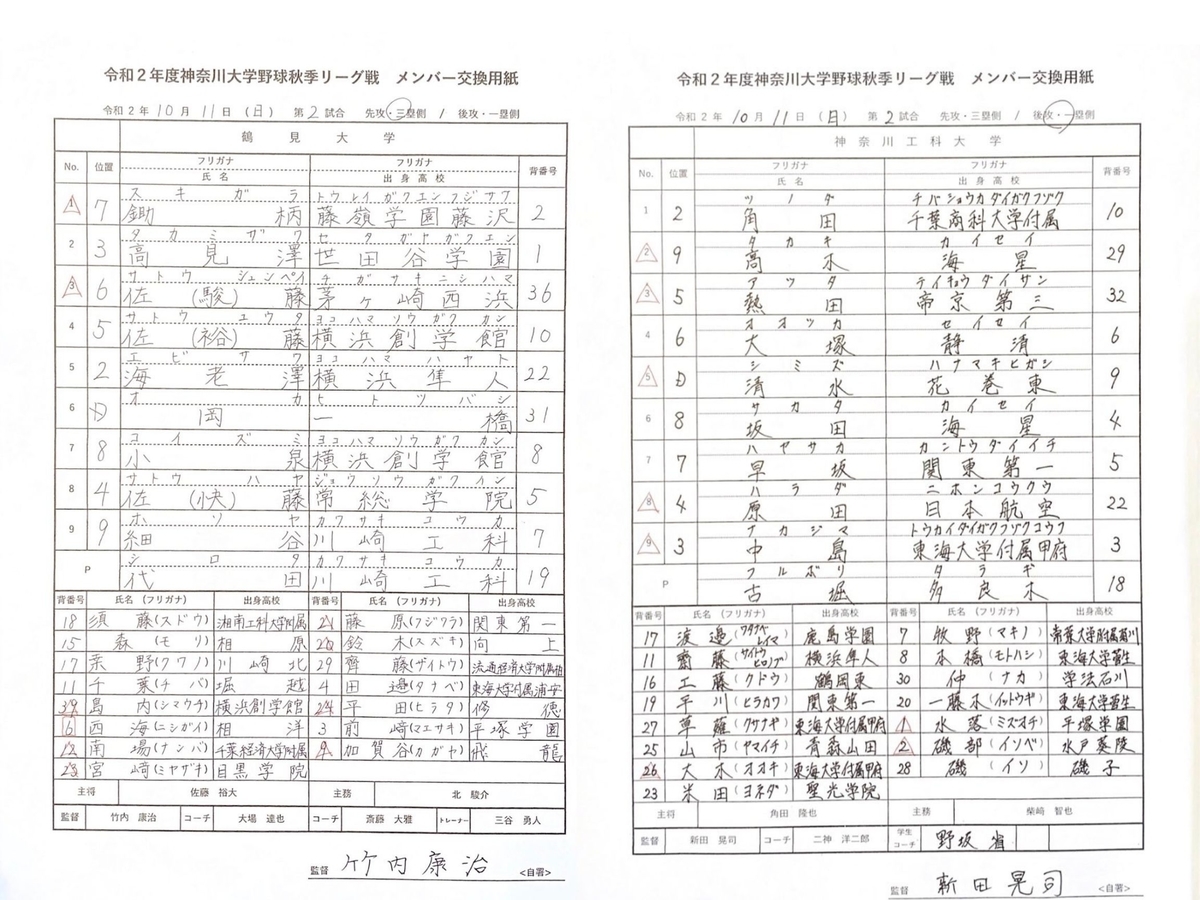 令和２年度神奈川大学野球秋季リーグ戦　メンバー交換用紙
令和２年 10 月 11 日 （日） 第 2 試合 先攻・三塁側 / 後攻・一塁側
鶴見大学
No. 位置 フリガナ 氏名 フリガナ 出身高校 背番号
スキガラ トウレイガクエンフジサワ
1 7 鋤柄 藤嶺学園藤沢 2
タカミザワ セタガヤガクエン
2 3 高見澤 世田谷学園 1
サトウシュンペイ チガサキニシハマ
3 6 佐(駿)藤 茅ヶ崎西浜 36
サトウユウタ ヨコハマソウガクカン
4 5 佐(裕)藤 横浜創学館 10
エビサワ ヨコハマハヤト
5 2 海老澤 横浜隼人 22
オカ ヒトツバシ
6 D 岡 一橋 31
コイズミ ヨコハマソウガクカン
7 8 小泉 横浜創学館 8
サトウハヤ ジョウソウガクイン
8 4 佐(快)藤 常総学院 5
ホソヤ カワサキコウカ
9 9 細谷 川崎工科 7
シロタ カワサキコウカ
P 代田 川崎工科 19
背番号 氏名（フリガナ） 出身高校 背番号 氏名（フリガナ） 出身高校
18 須藤(スドウ) 湘南工科大学附属 21 藤原(フジワラ) 関東第一
15 森(モリ) 相原 20 鈴木(スズキ) 向上
17 桑野(クワノ) 川崎北 29 齊藤(サイトウ)
11 千葉(チバ) 堀越 4 田邉(タナベ) 東海大学附属浦安
39 島内(シマウチ) 横浜創学館 24 平田(ヒラタ) 修徳
6 西海(ニシガイ) 相洋 3 前崎(マエサキ) 平塚学園
12 南場(ナンバ) 千葉経済大学附属 9 加賀谷(カガヤ) 飛龍
23 宮崎(ミヤザキ) 目黒学院
主将 佐藤 裕大 主務 北 駿介
監督 竹内 康治 コーチ 大場 達也 コーチ 斎藤 大雅 トレーナー 三谷 勇人
監督 竹内康治 <自署>
令和２年度神奈川大学野球秋季リーグ戦　メンバー交換用紙
令和２年 10 月 11 日 （日） 第 2 試合 先攻・三塁側 / 後攻・一塁側
神奈川工科大学
No. 位置 フリガナ 氏名 フリガナ 出身高校 背番号
ツノダ チバショウカダイガクフゾク
1 2 角田 千葉商科大学付属 10
タカキ カイセイ
2 9 高木 海星 29
アツタ テイキョウダイサン
3 5 熱田 帝京第三 32
オオツカ セイセイ
4 6 大塚 静清 6
シミズ ハナマキヒガシ
5 D 清水 花巻東 9
サカタ カイセイ
6 8 坂田 海星 4
ハヤサカ カントウダイイチ
7 7 早坂 関東第一 5
ハラダ ニホンコウクウ
8 4 原田 日本航空 22
ナカジマ トウカイダイガクフゾクコウフ
9 3 中島 東海大学付属甲府 3
フルボリ タラギ
P 古堀 多良木 18
背番号 氏名（フリガナ） 出身高校 背番号 氏名（フリガナ） 出身高校
17 渡邉 鹿島学園 7 牧野(マキノ)
11 齋藤(サイトウヒロノブ) 横浜隼人 8 本橋(モトハシ) 東海大学菅生
16 工藤(クドウ) 鶴岡東 30 仲(ナカ) 学法石川
19 平川(ヒラカワ) 関東第一 20 一藤木(イットウギ) 東海大学菅生
27 草薙(クサナギ) 東海大学付属甲府 1 水落(ミズオチ) 平塚学園
25 山市(ヤマイチ) 青森山田 2 磯部(イソベ) 水戸葵陵
26 大木(オオキ) 東海大学付属甲府 28 磯(イソ) 磯子
23 米田(ヨネダ) 聖光学院
主将 角田 隆也 主務 柴崎 智也
監督 新田 晃司 コーチ 二神 洋二郎 学生コーチ 野坂省
監督 新田晃司 <自署>